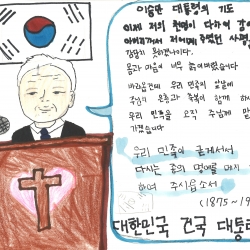 이승만 대통령의 기도
이제 저의 천명이 다하여 감에
아버지께서 저에게 주셨던 사명을
감당치 못하겠나이다.
몸과 마음이 너무 늙어버렸습니다
바라옵건데 우리 민족의 앞날에
주님의 은총과 축복이 함께 하시
우리 민족을 오직 주님께 맡
가겠습니다
우리 민족이 굳게서서
다시는 종의 멍에를 메지
하여 주시옵소서
(1875~19
대한민국 건국 대통